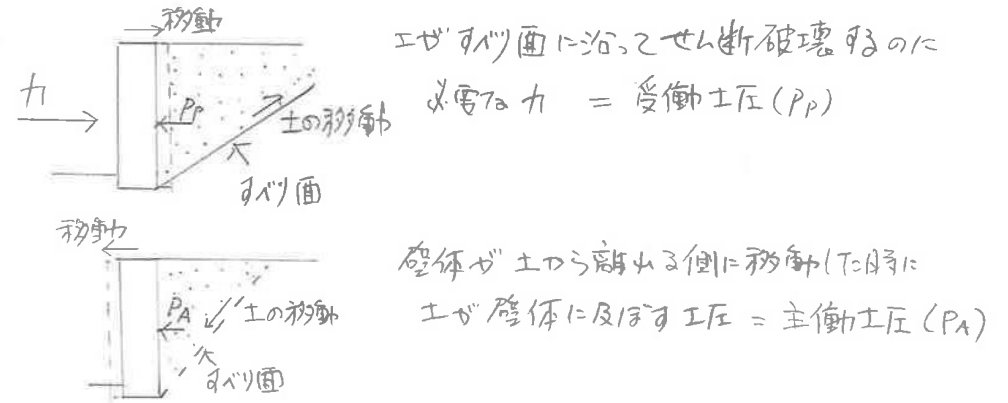 移動
力
PP
土の移動
すべり面
土がすべり面に沿ってせん断破壊するのに
必要な力 = 受働土圧(PP)
移動
PA
土の移動
すべり面
壁体が土から離れる側に移動した時に
土が壁体に及ぼす土圧 = 主働土圧(PA)